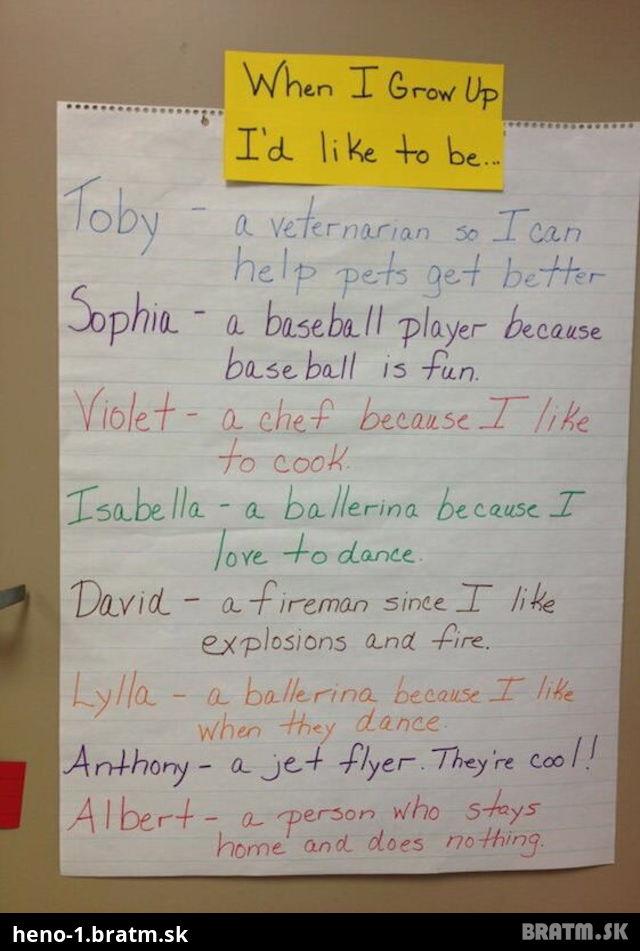 When I Grow Up
I'd like to be...
Toby - a veternarian so I can
help pets get better
Sophia - a baseball player because
baseball is fun.
Violet - a chef because I like
to cook.
Isabella - a ballerina because I
love to dance.
David - a fireman since I like
explosions and fire.
Lylla - a ballerina because I like
when they dance.
Anthony - a jet flyer. They're cool!
Albert - a person who stays
home and does nothing.
heno-1.bratm.sk
BRATM.SK